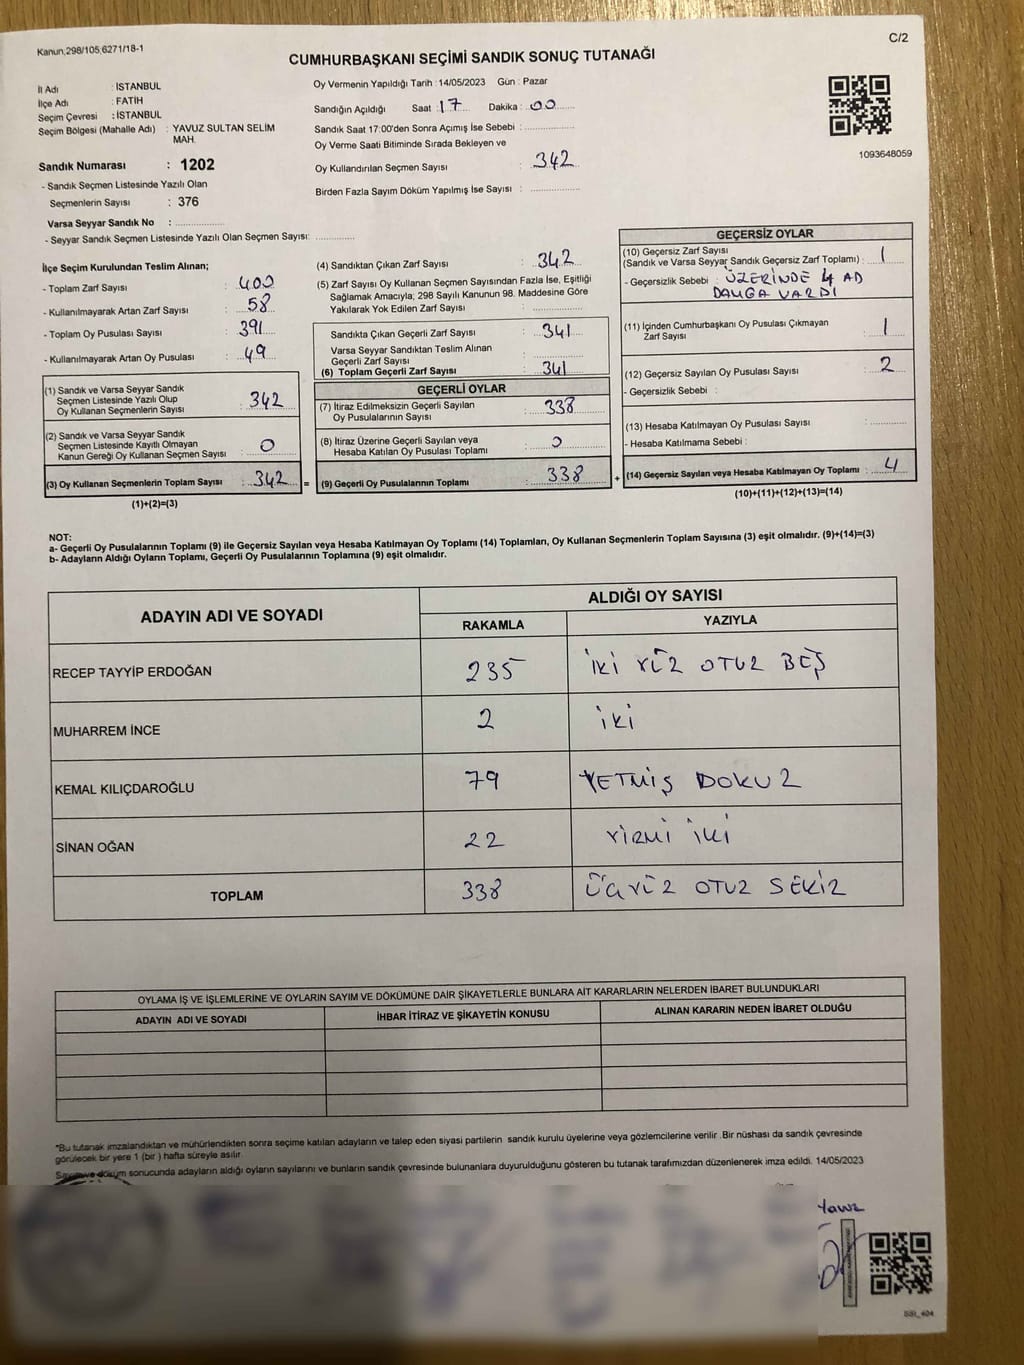 Kanun;298/105,6271/18-1
C/2
CUMHURBAŞKANI SEÇİMİ SANDIK SONUÇ TUTANAĞI
İl Adı : İSTANBUL
İlçe Adı : FATİH
Seçim Çevresi : İSTANBUL
Seçim Bölgesi (Mahalle Adı) : YAVUZ SULTAN SELİM
MAH.
Sandık Numarası : 1202
- Sandık Seçmen Listesinde Yazılı Olan
Seçmenlerin Sayısı : 376
Varsa Seyyar Sandık No : ..............
- Seyyar Sandık Seçmen Listesinde Yazılı Olan Seçmen Sayısı: ..............
Oy Vermenin Yapıldığı Tarih : 14/05/2023 Gün : Pazar
Sandığın Açıldığı Saat : 17 Dakika : 00
Sandık Saat 17:00'den Sonra Açımış İse Sebebi : ..............
Oy Verme Saati Bitiminde Sırada Bekleyen ve
Oy Kullandırılan Seçmen Sayısı : 342
Birden Fazla Sayım Döküm Yapılmış İse Sayısı : ..............
1093648059
İlçe Seçim Kurulundan Teslim Alınan;
- Toplam Zarf Sayısı : 400
- Kullanılmayarak Artan Zarf Sayısı : 58
- Toplam Oy Pusulası Sayısı : 391
- Kullanılmayarak Artan Oy Pusulası : 49
(1) Sandık ve Varsa Seyyar Sandık
Seçmen Listesinde Yazılı Olup
Oy Kullanan Seçmenlerin Sayısı : 342
(2) Sandık ve Varsa Seyyar Sandık
Seçmen Listesinde Kayıtlı Olmayan
Kanun Gereği Oy Kullanan Seçmen Sayısı : 0
(3) Oy Kullanan Seçmenlerin Toplam Sayısı : 342 =
(1)+(2)=(3)
(4) Sandıktan Çıkan Zarf Sayısı : 342
(5) Zarf Sayısı Oy Kullanan Seçmen Sayısından Fazla İse, Eşitliği
Sağlamak Amacıyla; 298 Sayılı Kanunun 98. Maddesine Göre
Yakılarak Yok Edilen Zarf Sayısı : ..............
Sandıkta Çıkan Geçerli Zarf Sayısı : 341
Varsa Seyyar Sandıktan Teslim Alınan
Geçerli Zarf Sayısı : ..............
(6) Toplam Geçerli Zarf Sayısı : 341
GEÇERLİ OYLAR
(7) İtiraz Edilmeksizin Geçerli Sayılan
Oy Pusulalarının Sayısı : 338
(8) İtiraz Üzerine Geçerli Sayılan veya
Hesaba Katılan Oy Pusulası Toplamı : 0
(9) Geçerli Oy Pusulalarının Toplamı : 338 +
GEÇERSİZ OYLAR
(10) Geçersiz Zarf Sayısı
(Sandık ve Varsa Seyyar Sandık Geçersiz Zarf Toplamı) : 1
- Geçersizlik Sebebi : ÜZERİNDE 4 AD
DAMGA VARDI
(11) İçinden Cumhurbaşkanı Oy Pusulası Çıkmayan
Zarf Sayısı : 1
(12) Geçersiz Sayılan Oy Pusulası Sayısı : 2
- Geçersizlik Sebebi :
(13) Hesaba Katılmayan Oy Pusulası Sayısı : ..............
- Hesaba Katılmama Sebebi :
(14) Geçersiz Sayılan veya Hesaba Katılmayan Oy Toplamı : 4
(10)+(11)+(12)+(13)=(14)
NOT:
a- Geçerli Oy Pusulalarının Toplamı (9) ile Geçersiz Sayılan veya Hesaba Katılmayan Oy Toplamı (14) Toplamları, Oy Kullanan Seçmenlerin Toplam Sayısına (3) eşit olmalıdır. (9)+(14)=(3)
b- Adayların Aldığı Oyların Toplamı, Geçerli Oy Pusulalarının Toplamına (9) eşit olmalıdır.
ADAYIN ADI VE SOYADI
ALDIĞI OY SAYISI
RAKAMLA YAZIYLA
RECEP TAYYİP ERDOĞAN 235 İKİ YÜZ OTUZ BEŞ
MUHARREM İNCE 2 İKİ
KEMAL KILIÇDAROĞLU 79 YETMİŞ DOKUZ
SİNAN OĞAN 22 YİRMİ İKİ
TOPLAM 338 ÜÇYÜZ OTUZ SEKİZ
OYLAMA İŞ VE İŞLEMLERİNE VE OYLARIN SAYIM VE DÖKÜMÜNE DAİR ŞİKAYETLERLE BUNLARA AİT KARARLARIN NELERDEN İBARET BULUNDUKLARI
ADAYIN ADI VE SOYADI İHBAR İTİRAZ VE ŞİKAYETİN KONUSU ALINAN KARARIN NEDEN İBARET OLDUĞU
*Bu tutanak imzalandıktan ve mühürlendikten sonra seçime katılan adayların ve talep eden siyasi partilerin sandık kurulu üyelerine veya gözlemcilerine verilir .Bir nüshası da sandık çevresinde
görülecek bir yere 1 (bir ) hafta süreyle asılır.
Sayım ve döküm sonucunda adayların aldığı oyların sayılarını ve bunların sandık çevresinde bulunanlara duyurulduğunu gösteren bu tutanak tarafımızdan düzenlenerek imza edildi. 14/05/2023
Yavuz